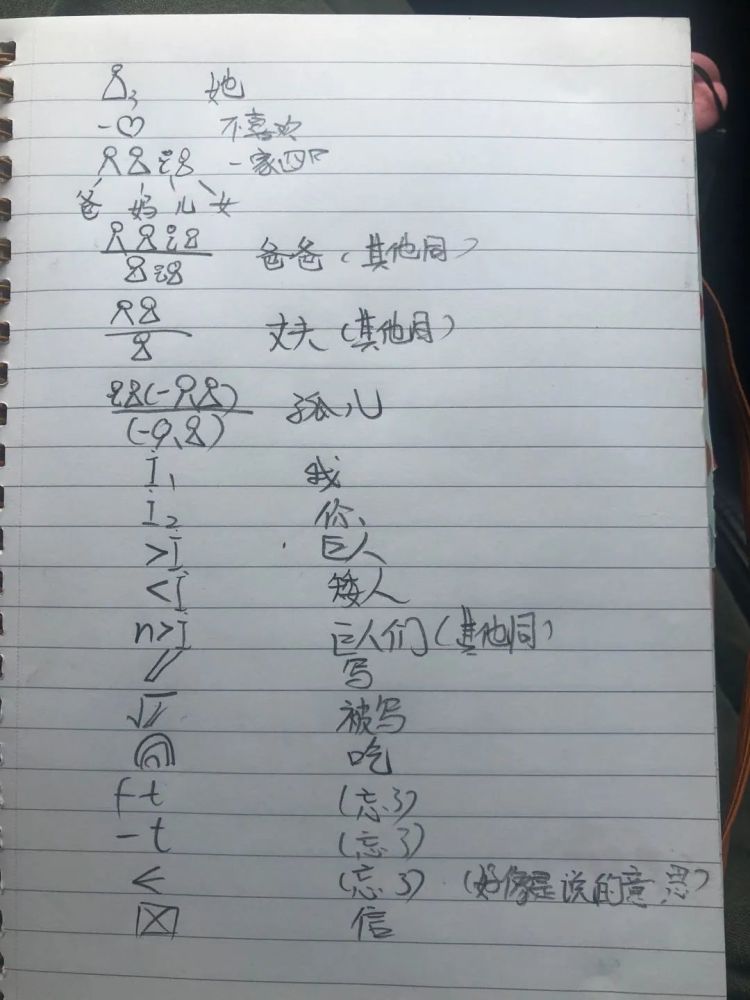 3 她
-♡ 不喜欢
一家四口
爸 妈 儿 女
爸爸(其他同)
丈夫(其他同)
孤儿
İ₁ 我
İ₂ 你
>İ 巨人
<İ 矮人
n>İ 巨人们(其他同)
// 写
√// 被写
吃
ft (忘了)
-t (忘了)
< (忘了) (好像是说的意思)
信